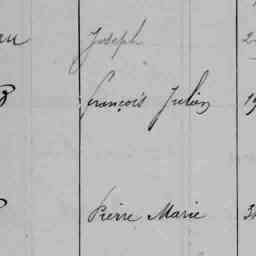 Joseph
François Julien
Pierre Marie